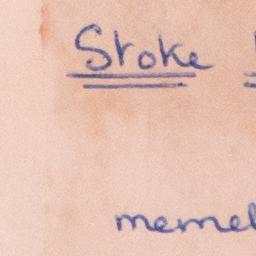 Stoke
memel